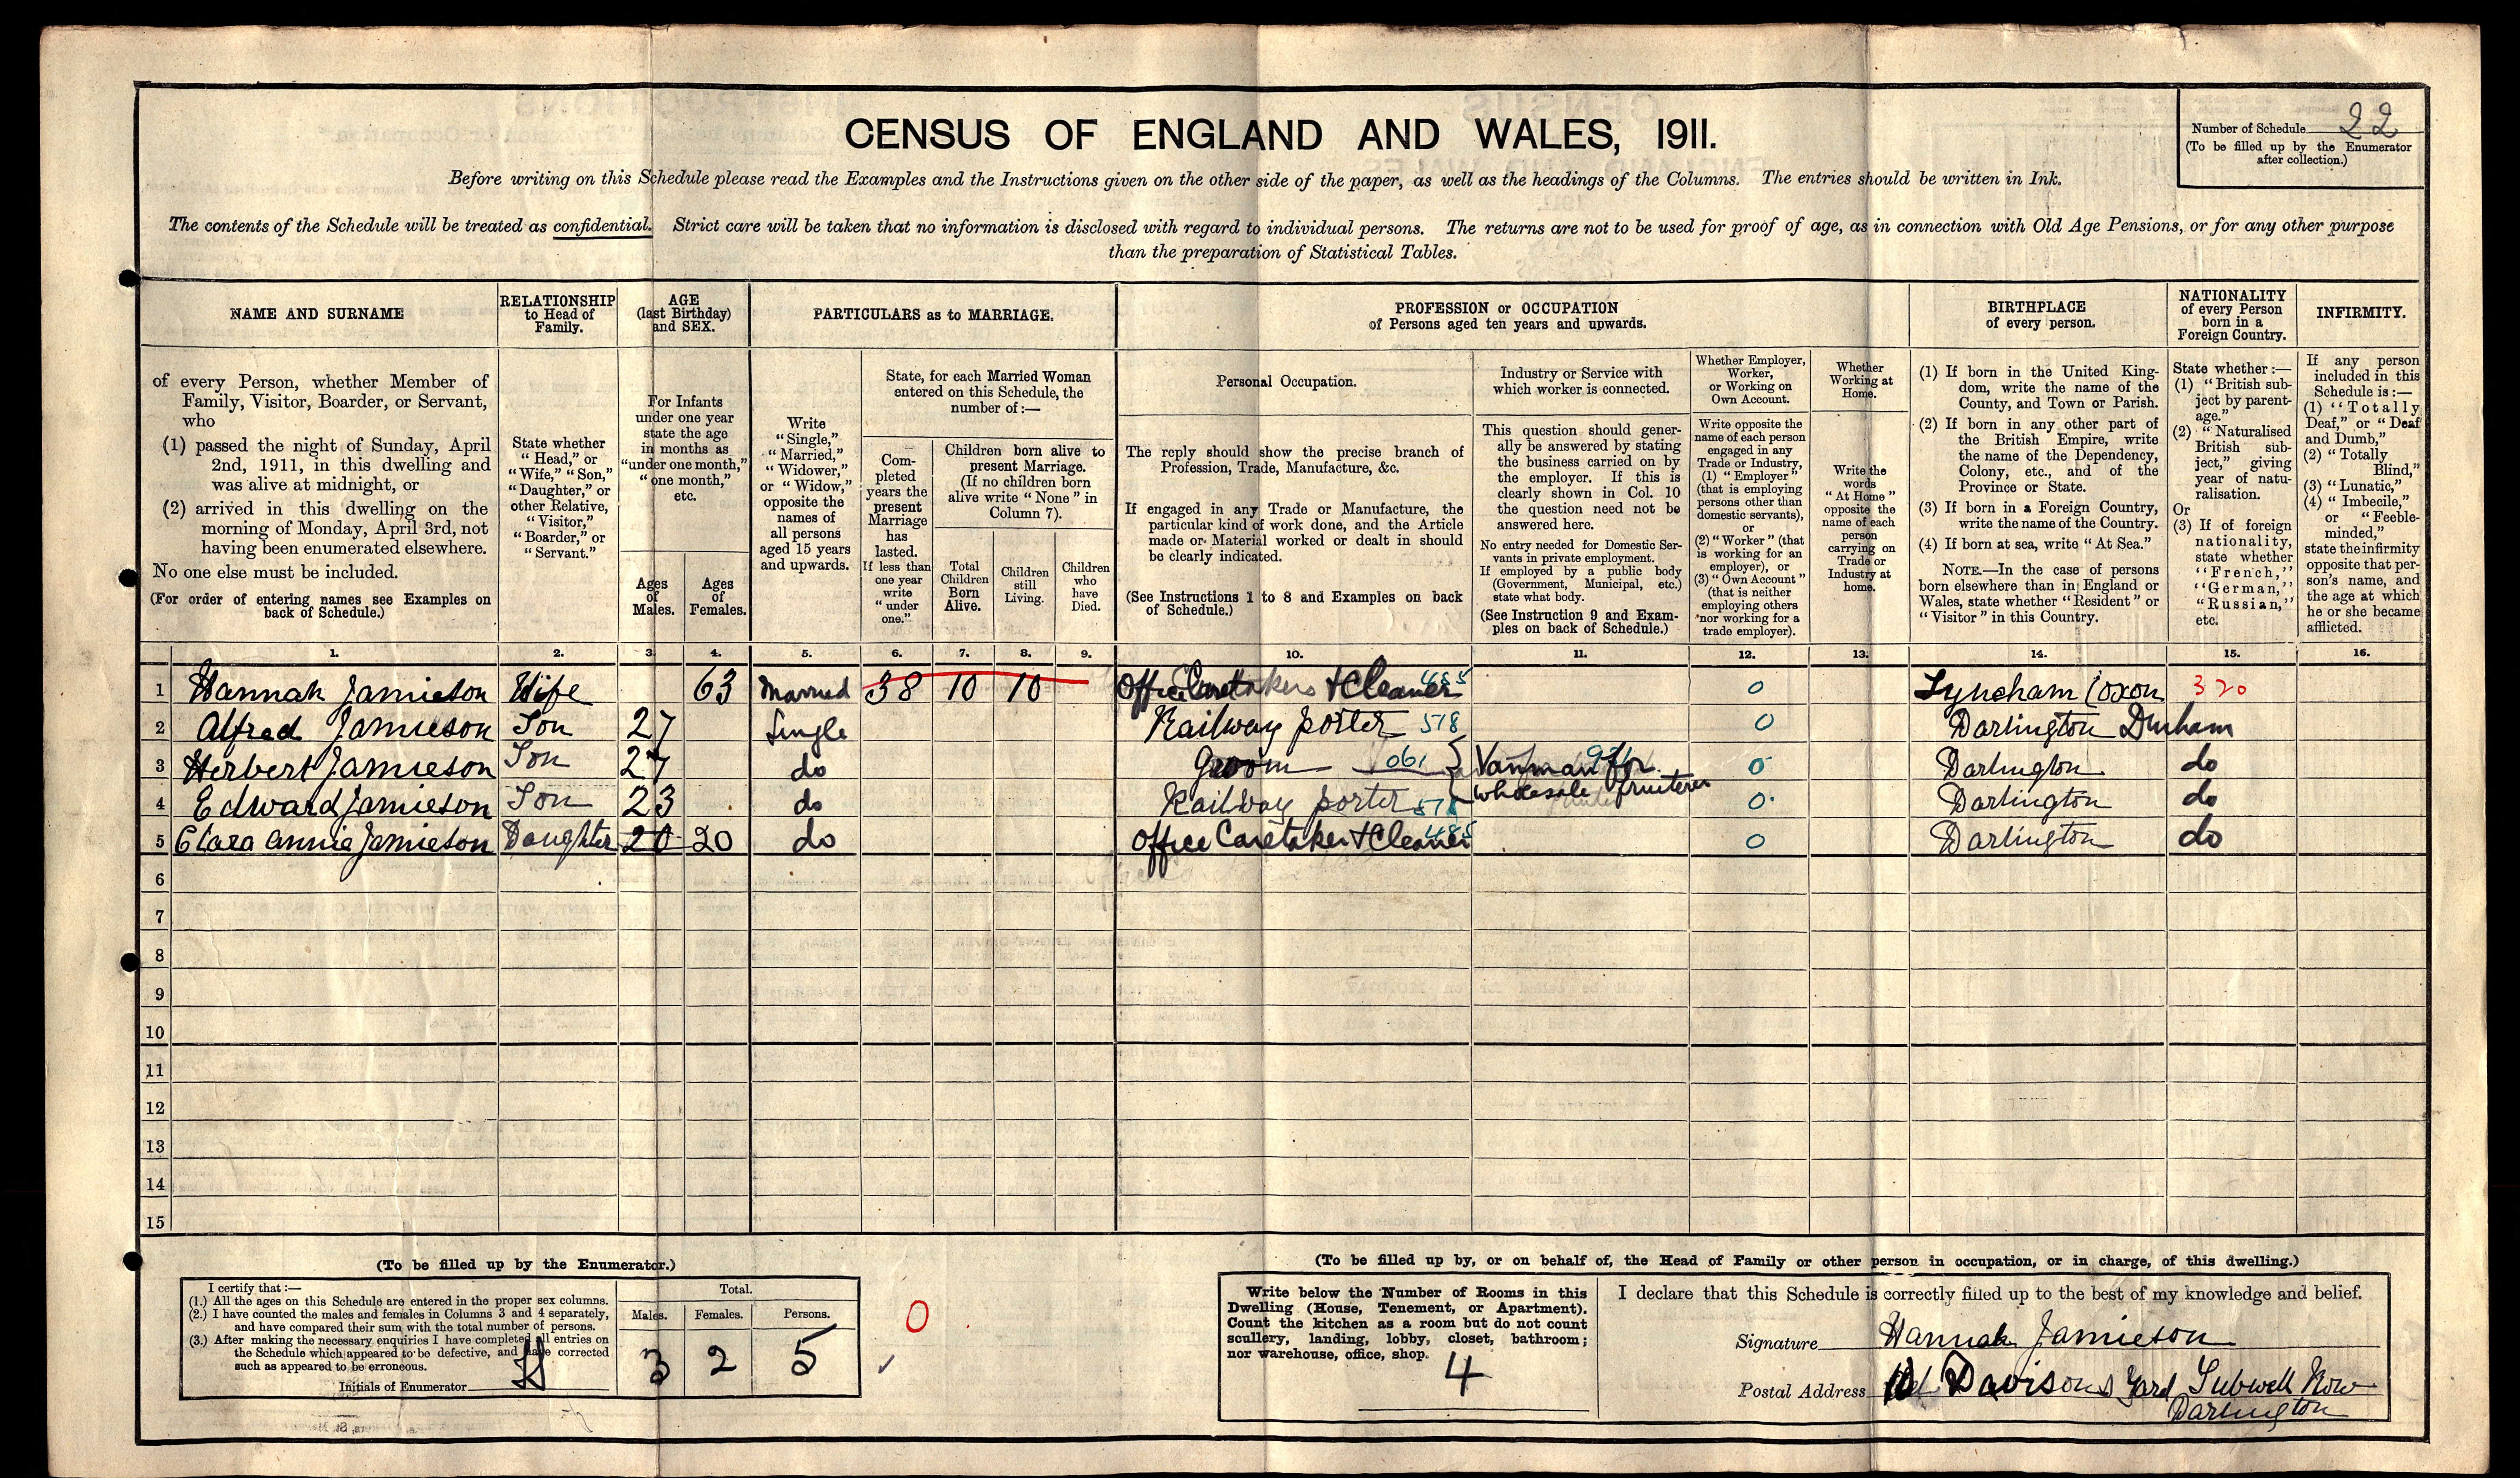 CENSUS OF ENGLAND AND WALES, 1911.
Number of Schedule 22
(To be filled up by the Enumerator
after collection.)
Before writing on this Schedule please read the Examples and the Instructions given on the other side of the paper, as well as the headings of the Columns. The entries should be written in Ink.
The contents of the Schedule will be treated as confidential. Strict care will be taken that no information is disclosed with regard to individual persons. The returns are not to be used for proof of age, as in connection with Old Age Pensions, or for any other purpose
than the preparation of Statistical Tables.
NAME AND SURNAME
of every Person, whether Member of
Family, Visitor, Boarder, or Servant,
who
(1) passed the night of Sunday, April
2nd, 1911, in this dwelling and
was alive at midnight, or
(2) arrived in this dwelling on the
morning of Monday, April 3rd, not
having been enumerated elsewhere.
No one else must be included.
(For order of entering names see Examples on
back of Schedule.)
RELATIONSHIP
to Head of
Family.
State whether
"Head," or
"Wife," "Son,"
"Daughter," or
other Relative,
"Visitor,"
"Boarder," or
"Servant."
AGE
(last Birthday)
and SEX.
For Infants
under one year
state the age
in months as
"under one month,"
"one month,"
etc.
Ages
of
Males.
Ages
of
Females.
PARTICULARS as to MARRIAGE.
Write
"Single,"
"Married,"
"Widower,"
or "Widow,"
opposite the
names of
all persons
aged 15 years
and upwards.
State, for each Married Woman
entered on this Schedule, the
number of:—
Com-
pleted
years the
present
Marriage
has
lasted.
If less than
one year
write
"under
one."
Children born alive to
present Marriage.
(If no children born
alive write "None" in
Column 7).
Total
Children
Born
Alive.
Children
still
Living.
Children
who
have
Died.
PROFESSION or OCCUPATION
of Persons aged ten years and upwards.
Personal Occupation.
The reply should show the precise branch of
Profession, Trade, Manufacture, &c.
If engaged in any Trade or Manufacture, the
particular kind of work done, and the Article
made or Material worked or dealt in should
be clearly indicated.
(See Instructions 1 to 8 and Examples on back
of Schedule.)
Industry or Service with
which worker is connected.
This question should gener-
ally be answered by stating
the business carried on by
the employer. If this is
clearly shown in Col. 10
the question need not be
answered here.
No entry needed for Domestic Ser-
vants in private employment.
If employed by a public body
(Government, Municipal, etc.)
state what body.
(See Instruction 9 and Exam-
ples on back of Schedule.)
Whether Employer,
Worker,
or Working on
Own Account.
Write opposite the
name of each person
engaged in any
Trade or Industry,
(1) "Employer"
(that is employing
persons other than
domestic servants),
or
(2) "Worker" (that
is working for an
employer), or
(3) "Own Account"
(that is neither
employing others
nor working for a
trade employer).
Whether
Working at
Home.
Write the
words
"At Home"
opposite the
name of each
person
carrying on
Trade or
Industry at
home.
BIRTHPLACE
of every person.
(1) If born in the United King-
dom, write the name of the
County, and Town or Parish.
(2) If born in any other part of
the British Empire, write
the name of the Dependency,
Colony, etc., and of the
Province or State.
(3) If born in a Foreign Country,
write the name of the Country.
(4) If born at sea, write "At Sea."
NOTE.—In the case of persons
born elsewhere than in England or
Wales, state whether "Resident" or
"Visitor" in this Country.
NATIONALITY
of every Person
born in a
Foreign Country.
State whether:—
(1) "British sub-
ject by parent-
age."
(2) "Naturalised
British sub-
ject," giving
year of natu-
ralisation.
Or
(3) If of foreign
nationality,
state whether
"French,"
"German,"
"Russian,"
etc.
INFIRMITY.
If any person
included in this
Schedule is:—
(1) "Totally
Deaf," or "Deaf
and Dumb,"
(2) "Totally
Blind,"
(3) "Lunatic,"
(4) "Imbecile,"
or "Feeble-
minded,"
state the infirmity
opposite that per-
son's name, and
the age at which
he or she became
afflicted.
1. 2. 3. 4. 5. 6. 7. 8. 9. 10. 11. 12. 13. 14. 15. 16.
1 Hannah Jamieson Wife 63 Married 38 10 10 Office Caretakers & Cleaner 485 0 Lyneham Oxon 320
2 Alfred Jamieson Son 27 Single Railway porter 578 0 Darlington Durham
3 Herbert Jamieson Son 27 do Groom 061 Vanman for 0 Darlington do
wholesale fruiterer
4 Edward Jamieson Son 23 do Railway porter 578 0 Darlington do
5 Clara Annie Jamieson Daughter 20 20 do Office Caretaker & Cleaner 485 0 Darlington do
6
7
8
9
10
11
12
13
14
15
(To be filled up by the Enumerator.)
I certify that:—
(1.) All the ages on this Schedule are entered in the proper sex columns.
(2.) I have counted the males and females in Columns 3 and 4 separately,
and have compared their sum with the total number of persons.
(3.) After making the necessary enquiries I have completed all entries on
the Schedule which appeared to be defective, and have corrected
such as appeared to be erroneous.
Initials of Enumerator
Total.
Males. Females. Persons.
3 2 5
0
(To be filled up by, or on behalf of, the Head of Family or other person in occupation, or in charge, of this dwelling.)
Write below the Number of Rooms in this
Dwelling (House, Tenement, or Apartment).
Count the kitchen as a room but do not count
scullery, landing, lobby, closet, bathroom;
nor warehouse, office, shop.
4
I declare that this Schedule is correctly filled up to the best of my knowledge and belief.
Signature Hannah Jamieson
Postal Address Davisons Yard Tubwell Row
Darlington